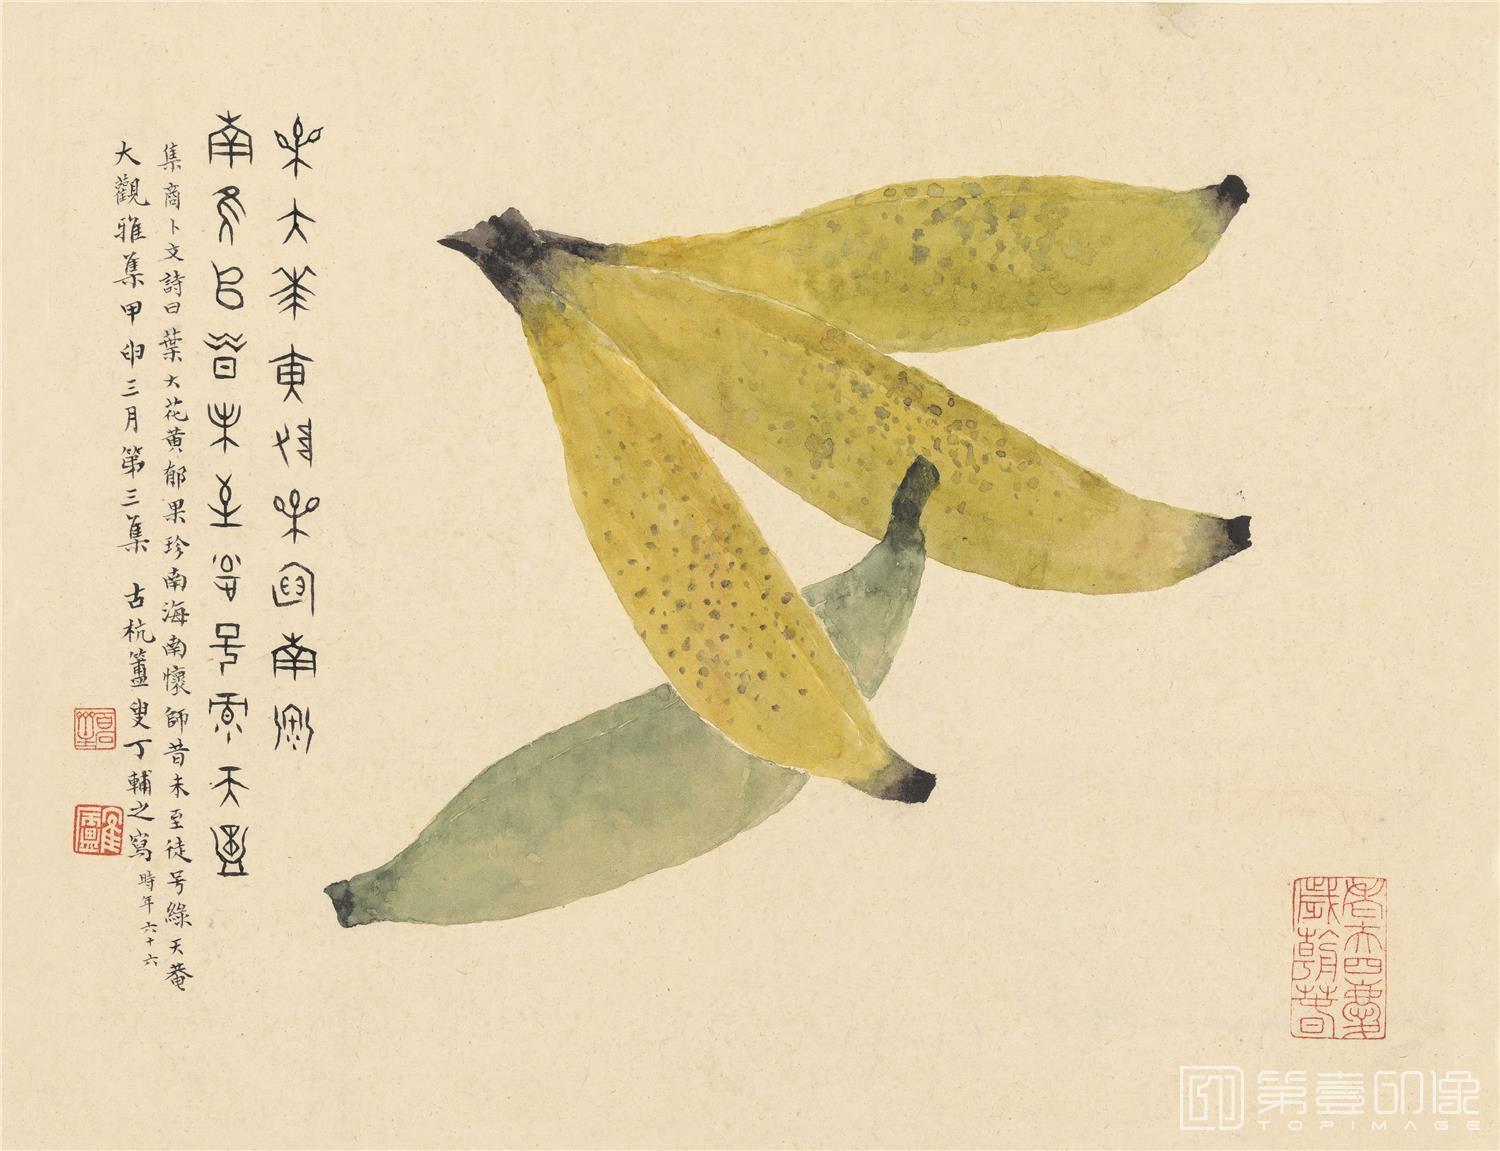 葉大花黃郁果珍南海
南懷師昔未至徒号綠天菴
集商卜文詩曰葉大花黃郁果珍南海南懷師昔未至徒号綠天菴
大觀雅集甲申三月第三集 古杭簠叟丁輔之寫時年六十六
鶴廬
第壹印像
TOPIMAGE